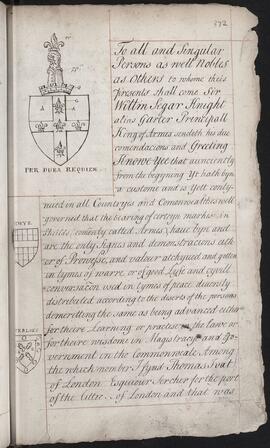 372
To all and Singular
Persons as well Nobles
as Others to whome theis
presents shall come Ser
Willm Segar Knight
alias Garter Principall
King of Armes sendeth his due
comendacions and Greeting
Knowe Yee that aunciently
from the begynning Yt hath byn
a custome and is yett conty-
PER DURA REQUIEM
nued in all Countryes and Comonwealthes well
governed that the bearing of certeyn markes in
Shilds, comonly called Armes, have byne and
are the only signes and demonstracions eith
er of Prowesse, and valour atchyved and gotten
in tymes of warre or of good Lyfe and cyvell
conversacon used in tymes of peace diversly
distributed according to the deserts of the persons
demeritting the same as being advanced either
for theire Learning or practise in the Lawe or
for theire wisdom in Magistracy and Go-
vernment in the Commonweale Among
the which nomber I fynd Thomas
of London Esquiour Sercher for the port
of the Cittie of London and that was